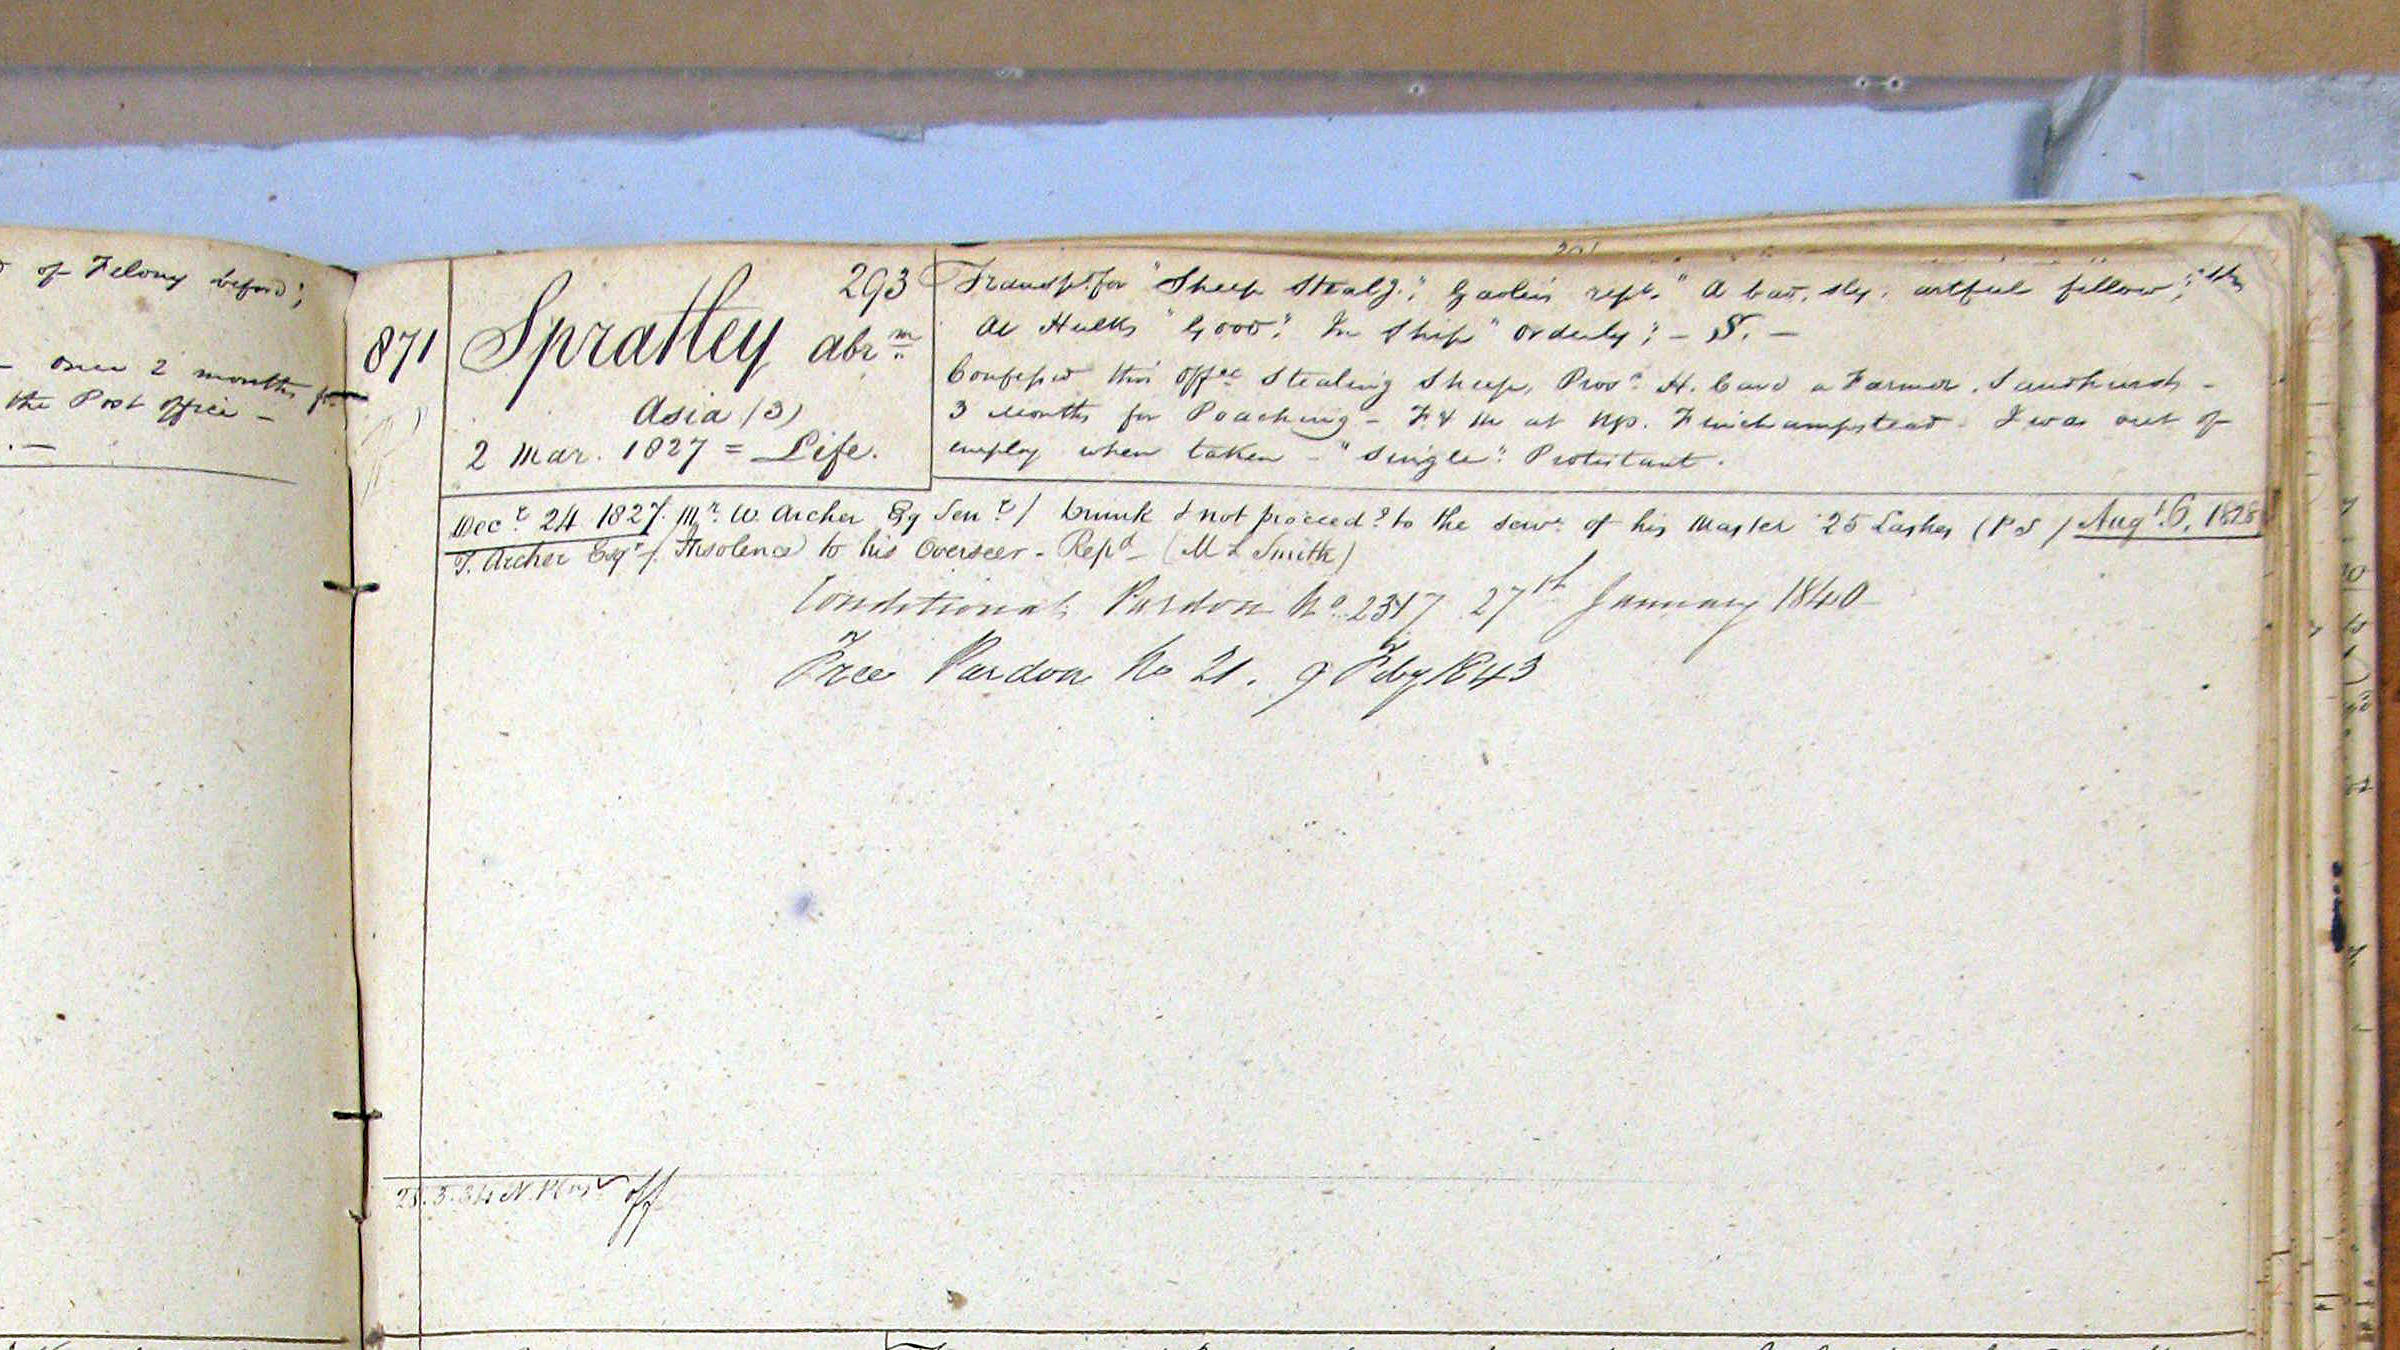 of Felony before;
once 2 months for
the Post office -
293
871 Sprattey abr.m
Asia (3)
2 Mar. 1827 = Life.
Transp.d for "Sheep Stealg." Gaoler's rept. "A bad, sly, artful fellow";
At Hulks "Good": In Ship "Orderly"; - S. -
Confessed this offce Stealing Sheep, Pros.r H. Card a Farmer, Sandhurst -
3 Months for Poaching - F & M at Np. Finchampstead - I was out of
employ when taken - "Single": Protestant.
Decr. 24 1827. Mr. W. Archer Senr / Drunk & not proceedg to the serve of his Master 25 Lashes (P S) Augt. 6, 1828
T. Archer Esqr / Insolence to his Overseer - Repd - (M L Smith)
Conditional Pardon No. 2317 27th January 1840
Free Pardon No 21. 9 Feby 1843
off